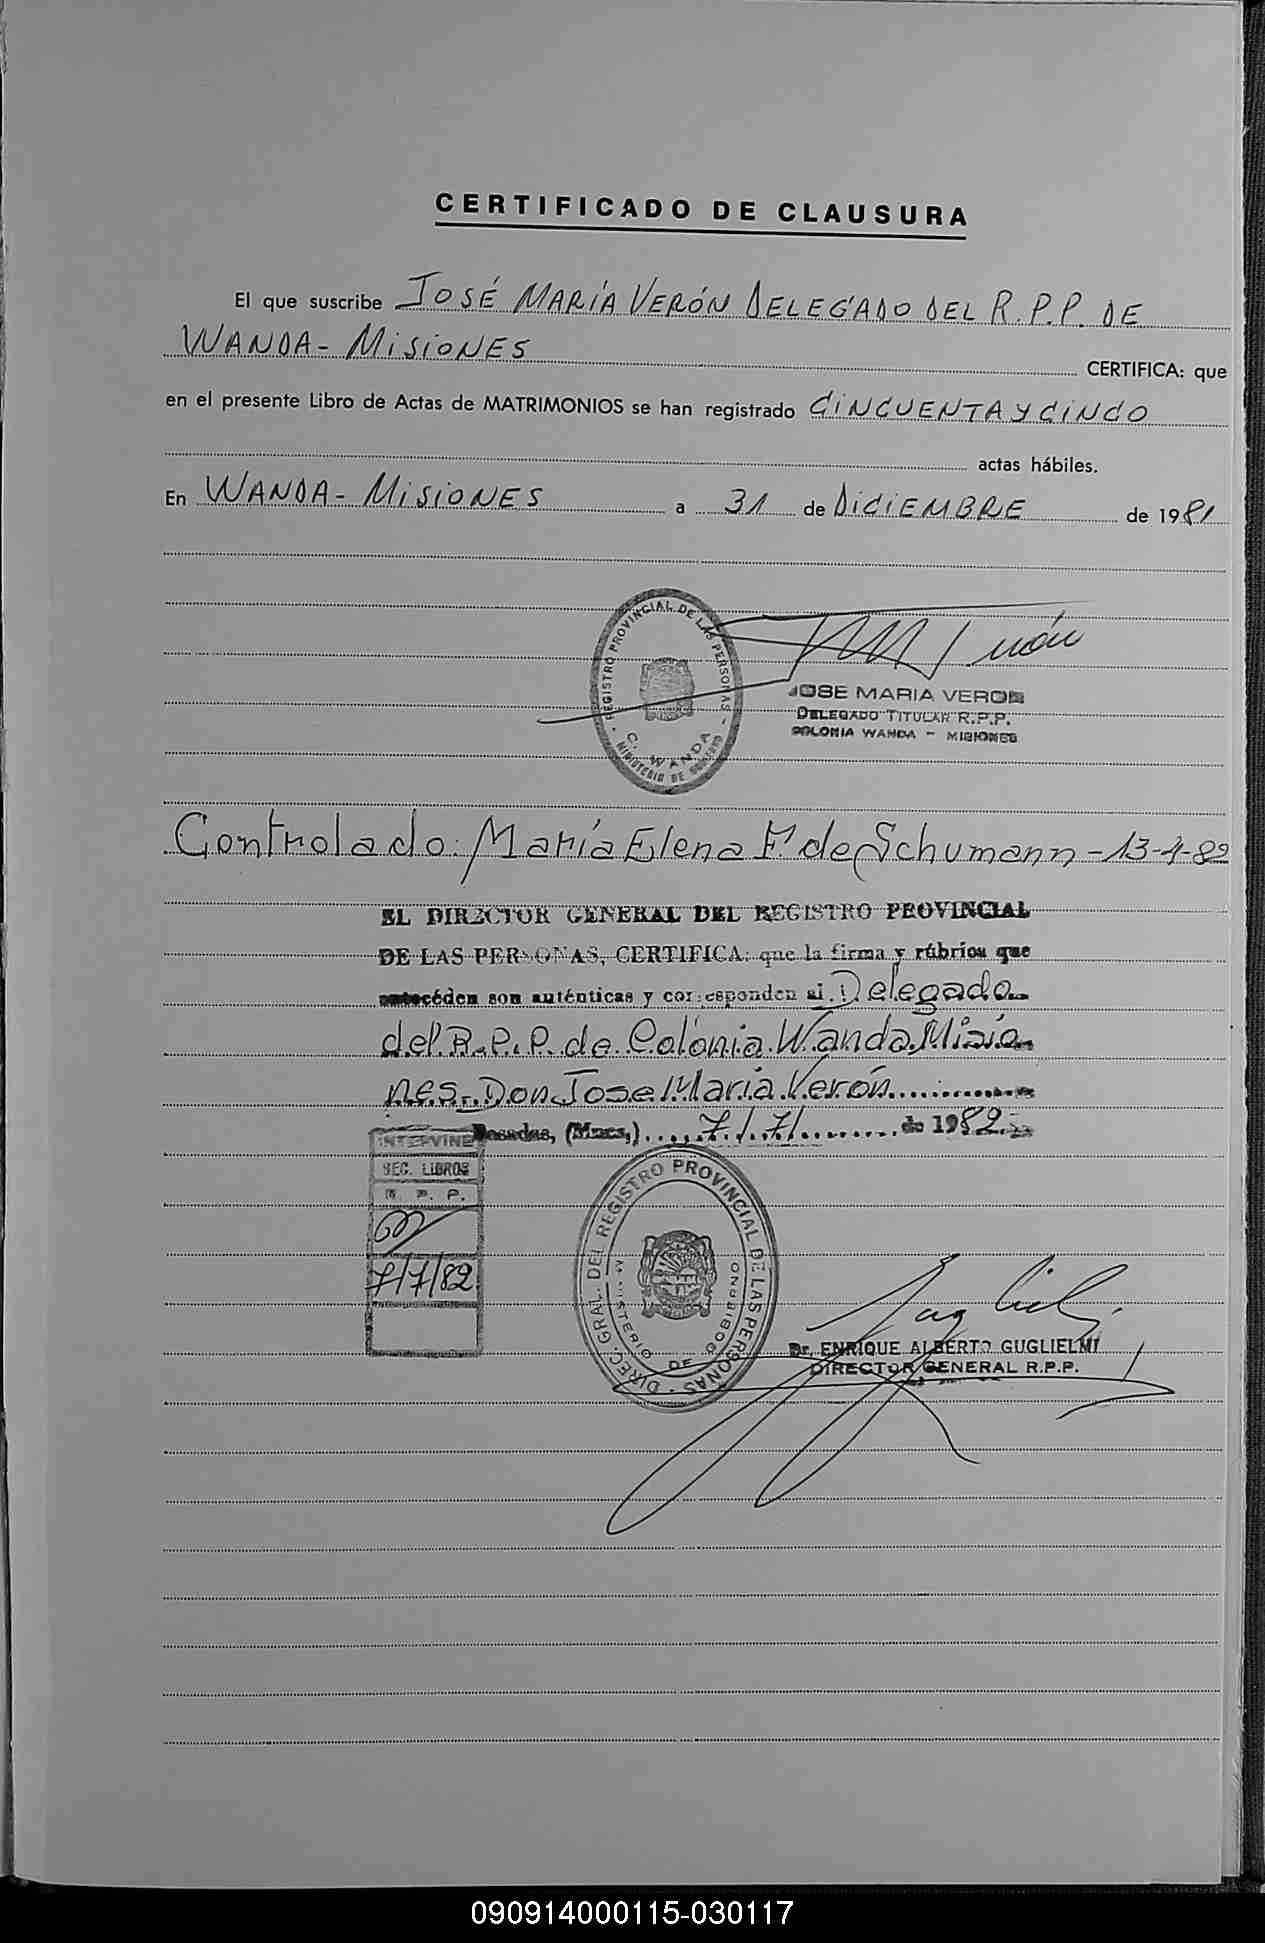 CERTIFICADO DE CLAUSURA
El que suscribe JOSÉ MARÍA VERÓN DELEGADO DEL R.P.P. DE
WANDA - MISIONES CERTIFICA: que
en el presente Libro de Actas de MATRIMONIOS se han registrado CINCUENTA Y CINCO
actas hábiles.
En WANDA - MISIONES a 31 de DICIEMBRE de 1981
REGISTRO PROVINCIAL DE LAS PERSONAS
C. WANDA
MINISTERIO DE GOBIERNO
JOSE MARIA VERON
DELEGADO TITULAR R.P.P.
COLONIA WANDA - MISIONES
Controlado: María Elena F. de Schumann - 13-4-82
EL DIRECTOR GENERAL DEL REGISTRO PROVINCIAL
DE LAS PERSONAS, CERTIFICA: que la firma y rúbrica que
anteceden son auténticas y corresponden al Delegado
del R.P.P. de Colonia Wanda Misio
nes. Don Jose María Verón
Posadas, (Mnes,) 7/7/ de 1982
INTERVINE
SEC. LIBROS
R. P. P.
7/7/82
DIREC. GRAL. DEL REGISTRO PROVINCIAL DE LAS PERSONAS
MINISTERIO DE GOBIERNO
Dr. ENRIQUE ALBERTO GUGLIELMI
DIRECTOR GENERAL R.P.P.
090914000115-030117